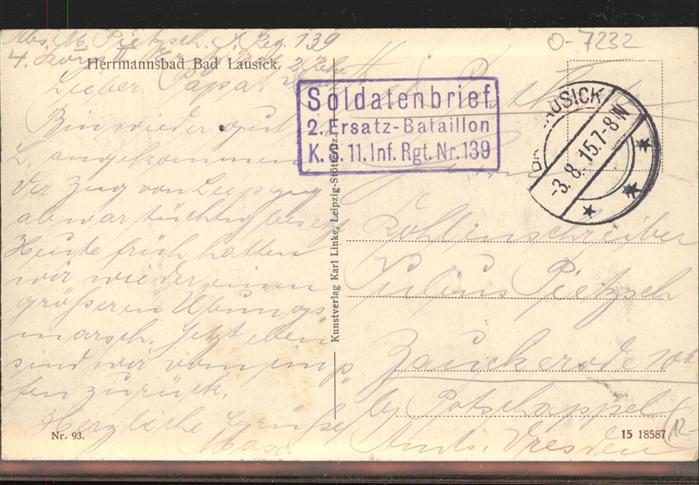 Abs. M. Pietzsch. I. Reg. 139
4. Kor
O-7232
Herrmannsbad Bad Lausick.
Lieber Papa!
Bin wieder gut
L. angekommen
Der Zug von Leipzig
a war tüchtig besetzt
Heute früh hatten
wir wieder einen
grösseren Übungs
marsch. Jetzt eben
sind wir vom
fen zurück.
Herzliche Grüsse
Max.
Nr. 93.
Kunstverlag Karl Linke, Leipzig-Stötteritz.
Soldatenbrief
2. Ersatz-Bataillon
K. S. 11. Inf. Rgt. Nr. 139
LAUSICK
-3.8.15.7-8N
Kohlenschreiber
Julius Pietzsch
Zauckerode
by Potschappel
Amts. Dresden
15 18587